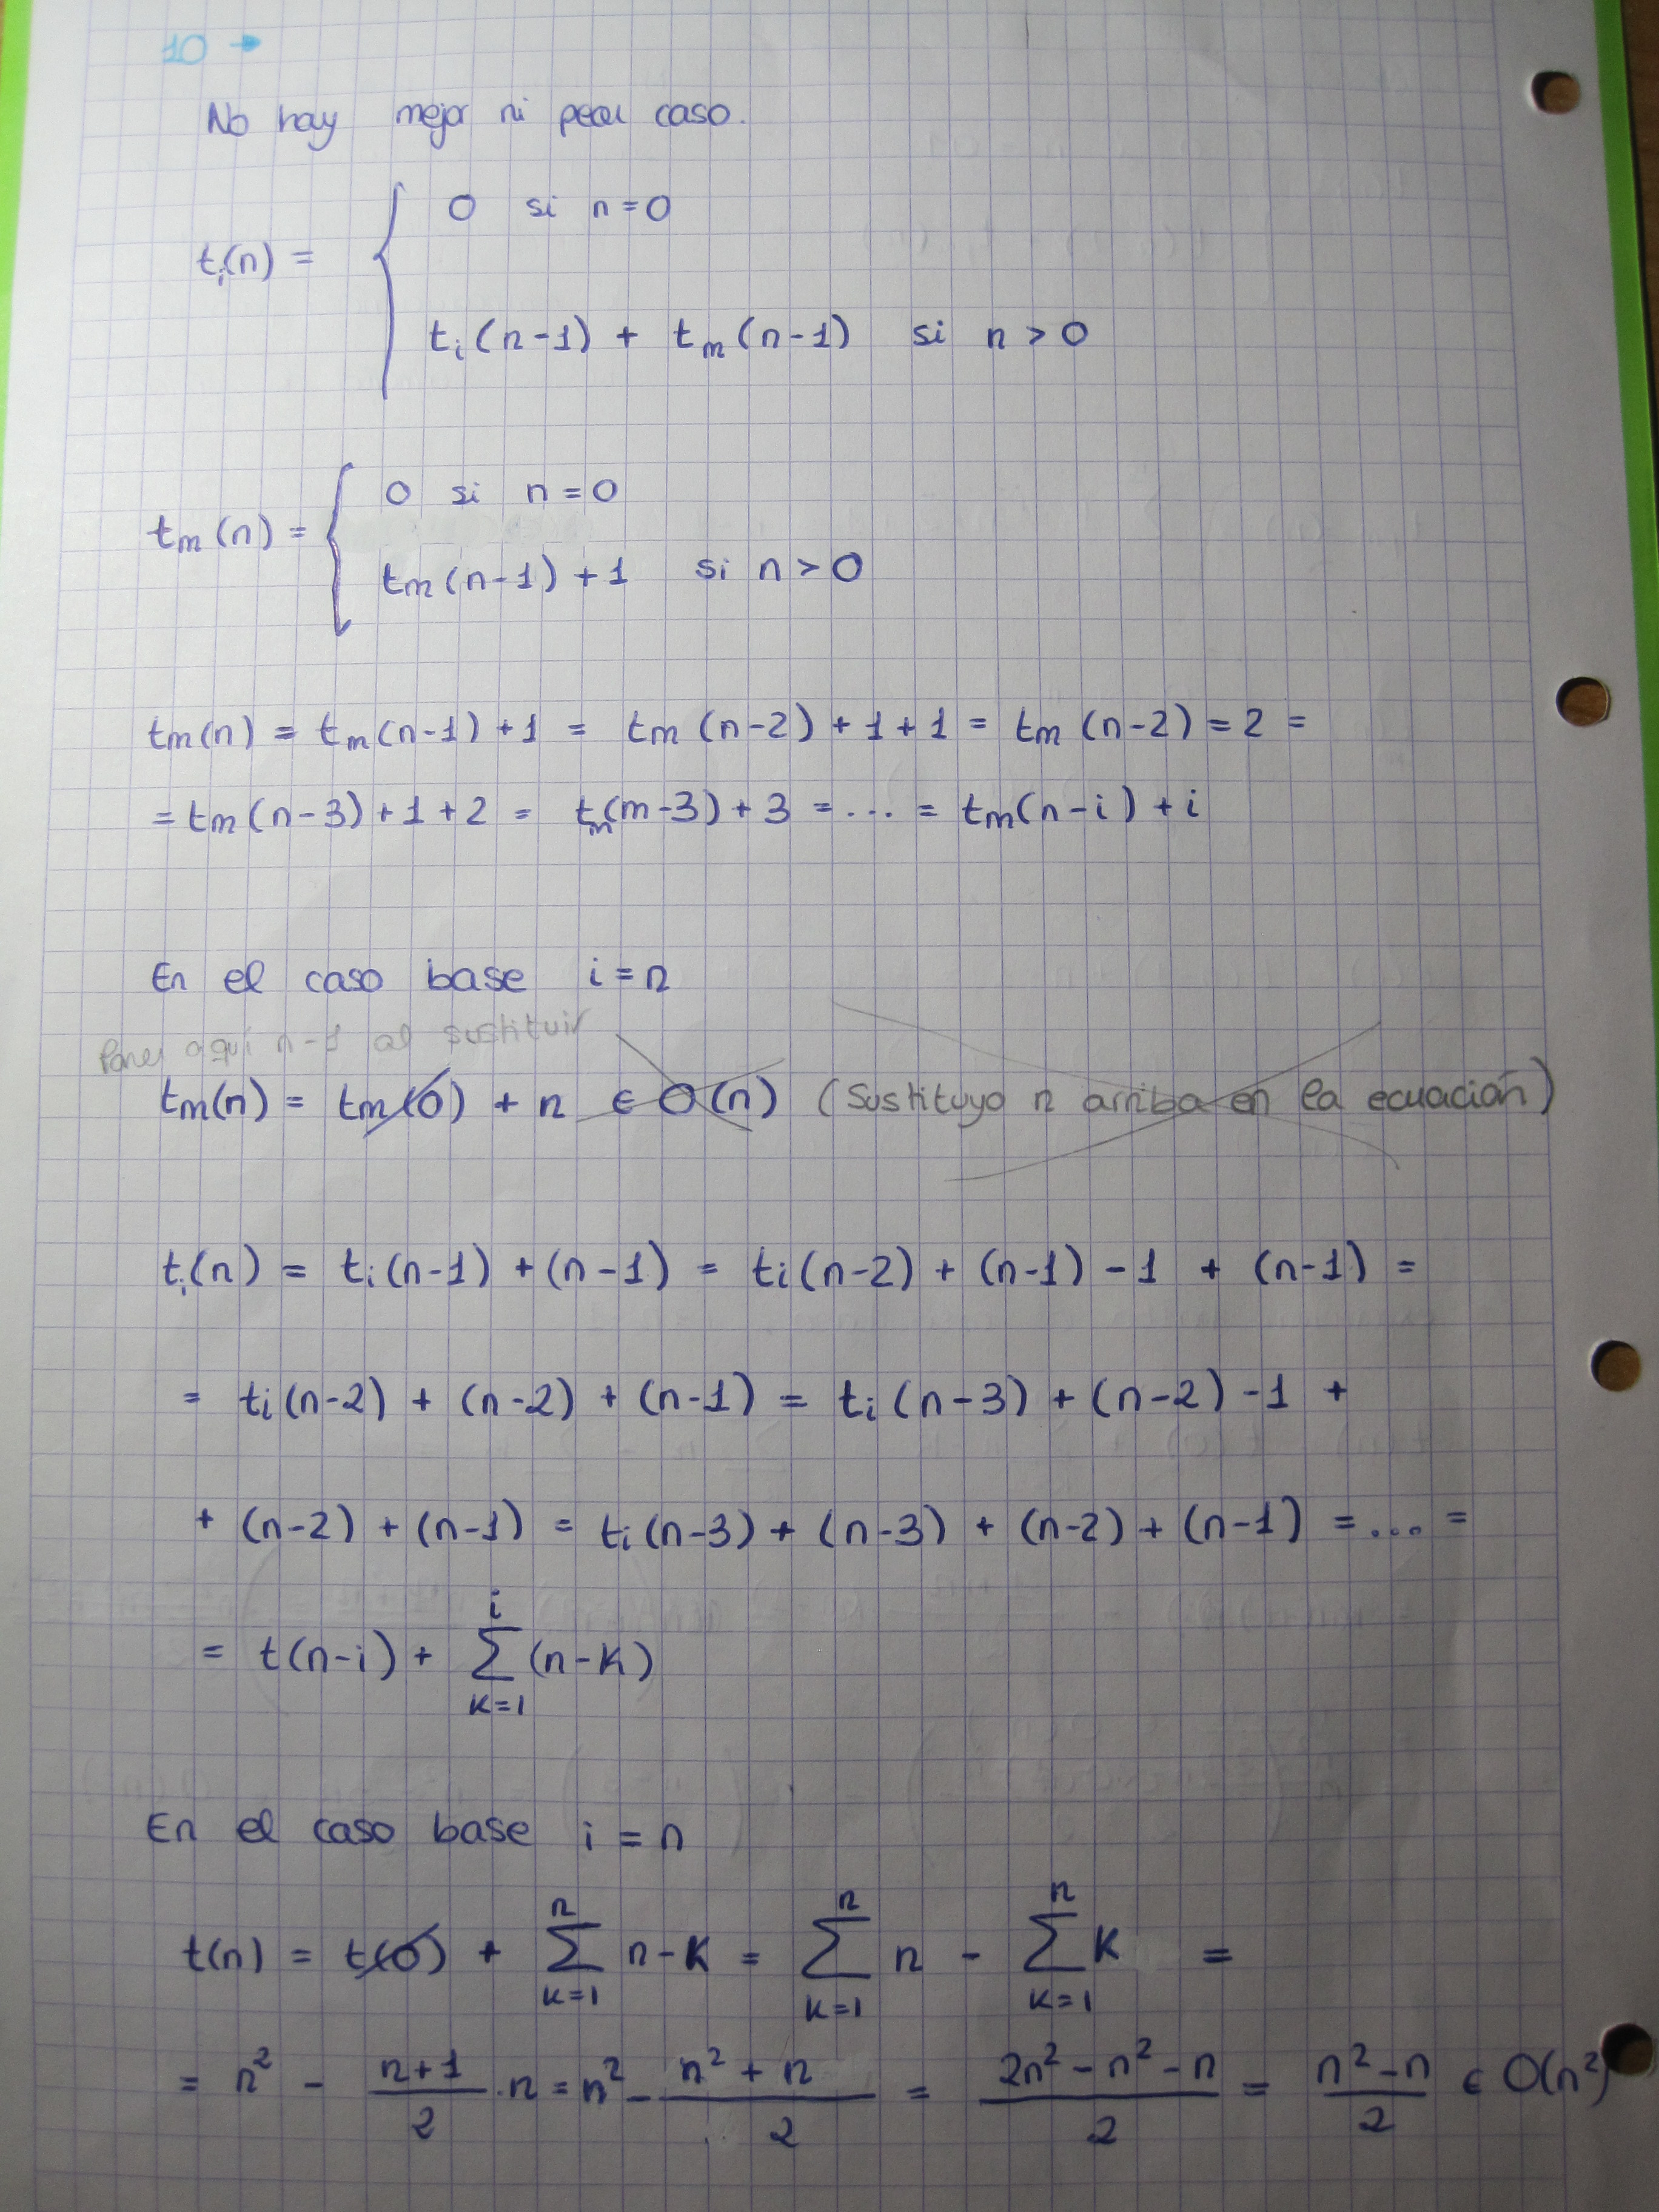 10 →
No hay mejor ni peor caso.
tᵢ(n) = { 0 si n = 0
tᵢ(n-1) + tₘ(n-1) si n > 0
tₘ(n) = { 0 si n = 0
tₘ(n-1) + 1 si n > 0
tₘ(n) = tₘ(n-1) + 1 = tₘ(n-2) + 1 + 1 = tₘ(n-2) = 2 =
= tₘ(n-3) + 1 + 2 = tₘ(m-3) + 3 = ... = tₘ(n-i) + i
En el caso base i = n
Poner aquí n-1 al sustituir
tₘ(n) = tₘ(0) + n ∈ O(n) (Sustituyo n arriba en la ecuación)
tᵢ(n) = tᵢ(n-1) + (n-1) = tᵢ(n-2) + (n-1) - 1 + (n-1) =
= tᵢ(n-2) + (n-2) + (n-1) = tᵢ(n-3) + (n-2) - 1 +
+ (n-2) + (n-1) = tᵢ(n-3) + (n-3) + (n-2) + (n-1) = ... =
= t(n-i) + ∑_{k=1}^{i} (n-k)
En el caso base i = n
t(n) = t(0) + ∑_{k=1}^{n} n-k = ∑_{k=1}^{n} n - ∑_{k=1}^{n} k =
= n² - (n+1)/2 · n = n² - (n² + n)/2 = (2n² - n² - n)/2 = (n² - n)/2 ∈ O(n²)